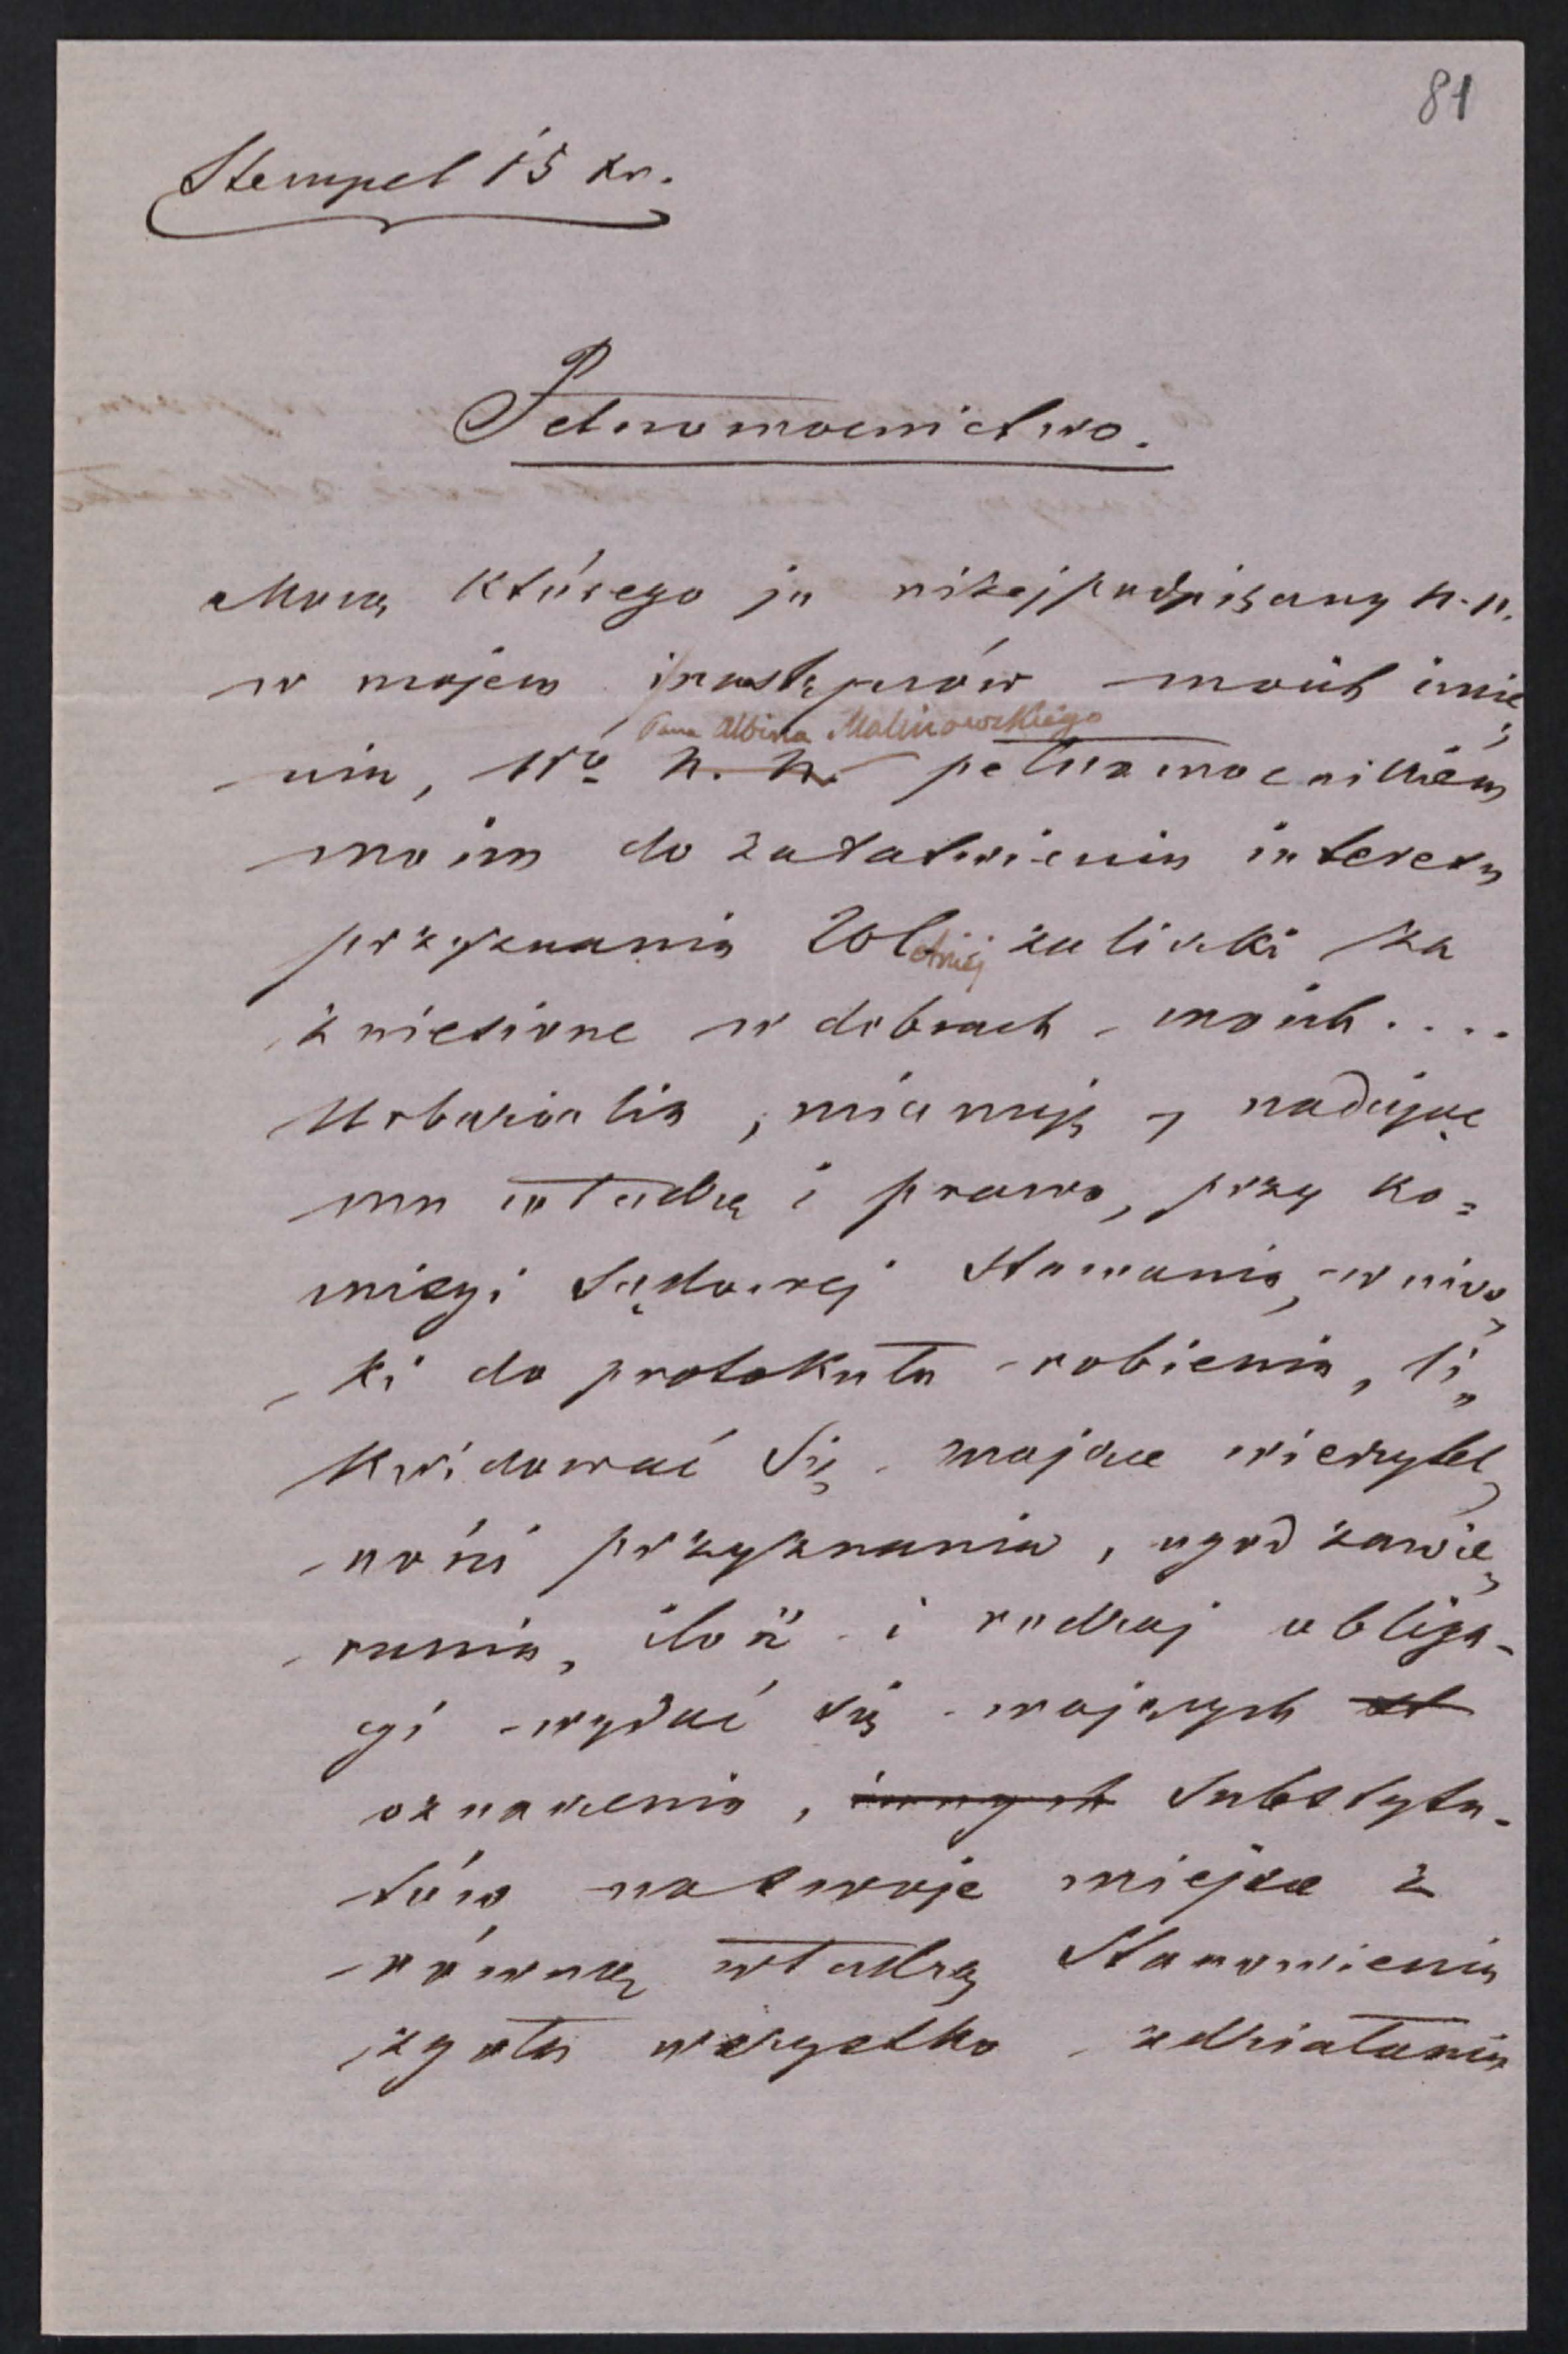 81
Stempel 15 kr.
Pełnomocnictwo.
Mocą którego ja niżej podpisany N. N.
w mojem i następców moich imie„
Pana Albina Malinowskiego
niu, Wo N. N. pełnomocnikiem
moim do załatwienia interesu
przyznania 20letniéj zaliczki za
zniesione w dobrach moich ....
Urbarialia, mianuję, nadając
mu władzę i prawo, przy ko=
misyi Sądowej stawania, wnios„
ki do protokułu robienia, li„
kwidować się mające wierzytel„
ności przyznania, ugod zawie„
rania, ilość i rodzaj obliga-
cyi wydać się mających
oznaczenia, innych Substytu-
tów na swoje miejsce z
równą władzą Stanowienia
zgoła wszystko zdziałania